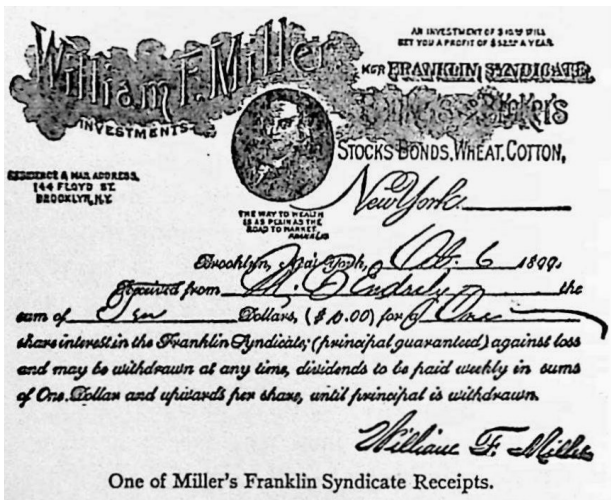 William F. Miller
INVESTMENTS
AN INVESTMENT OF $10.00 WILL
NET YOU A PROFIT OF $52.00 A YEAR.
MGR FRANKLIN SYNDICATE,
STOCKS BONDS, WHEAT, COTTON,
New York.
RESIDENCE & MAIL ADDRESS,
144 FLOYD ST.
BROOKLYN, N.Y.
THE WAY TO WEALTH
IS AS PLAIN AS THE
ROAD TO MARKET.
FRANKLIN
Brooklyn, New York, Oct. 6 1899.
Received from the
sum of Ten Dollars, ($10.00) for One
share interest in the Franklin Syndicate; (principal guaranteed) against loss
and may be withdrawn at any time, dividends to be paid weekly in sums
of One Dollar and upwards per share, until principal is withdrawn.
William F. Miller
One of Miller's Franklin Syndicate Receipts.